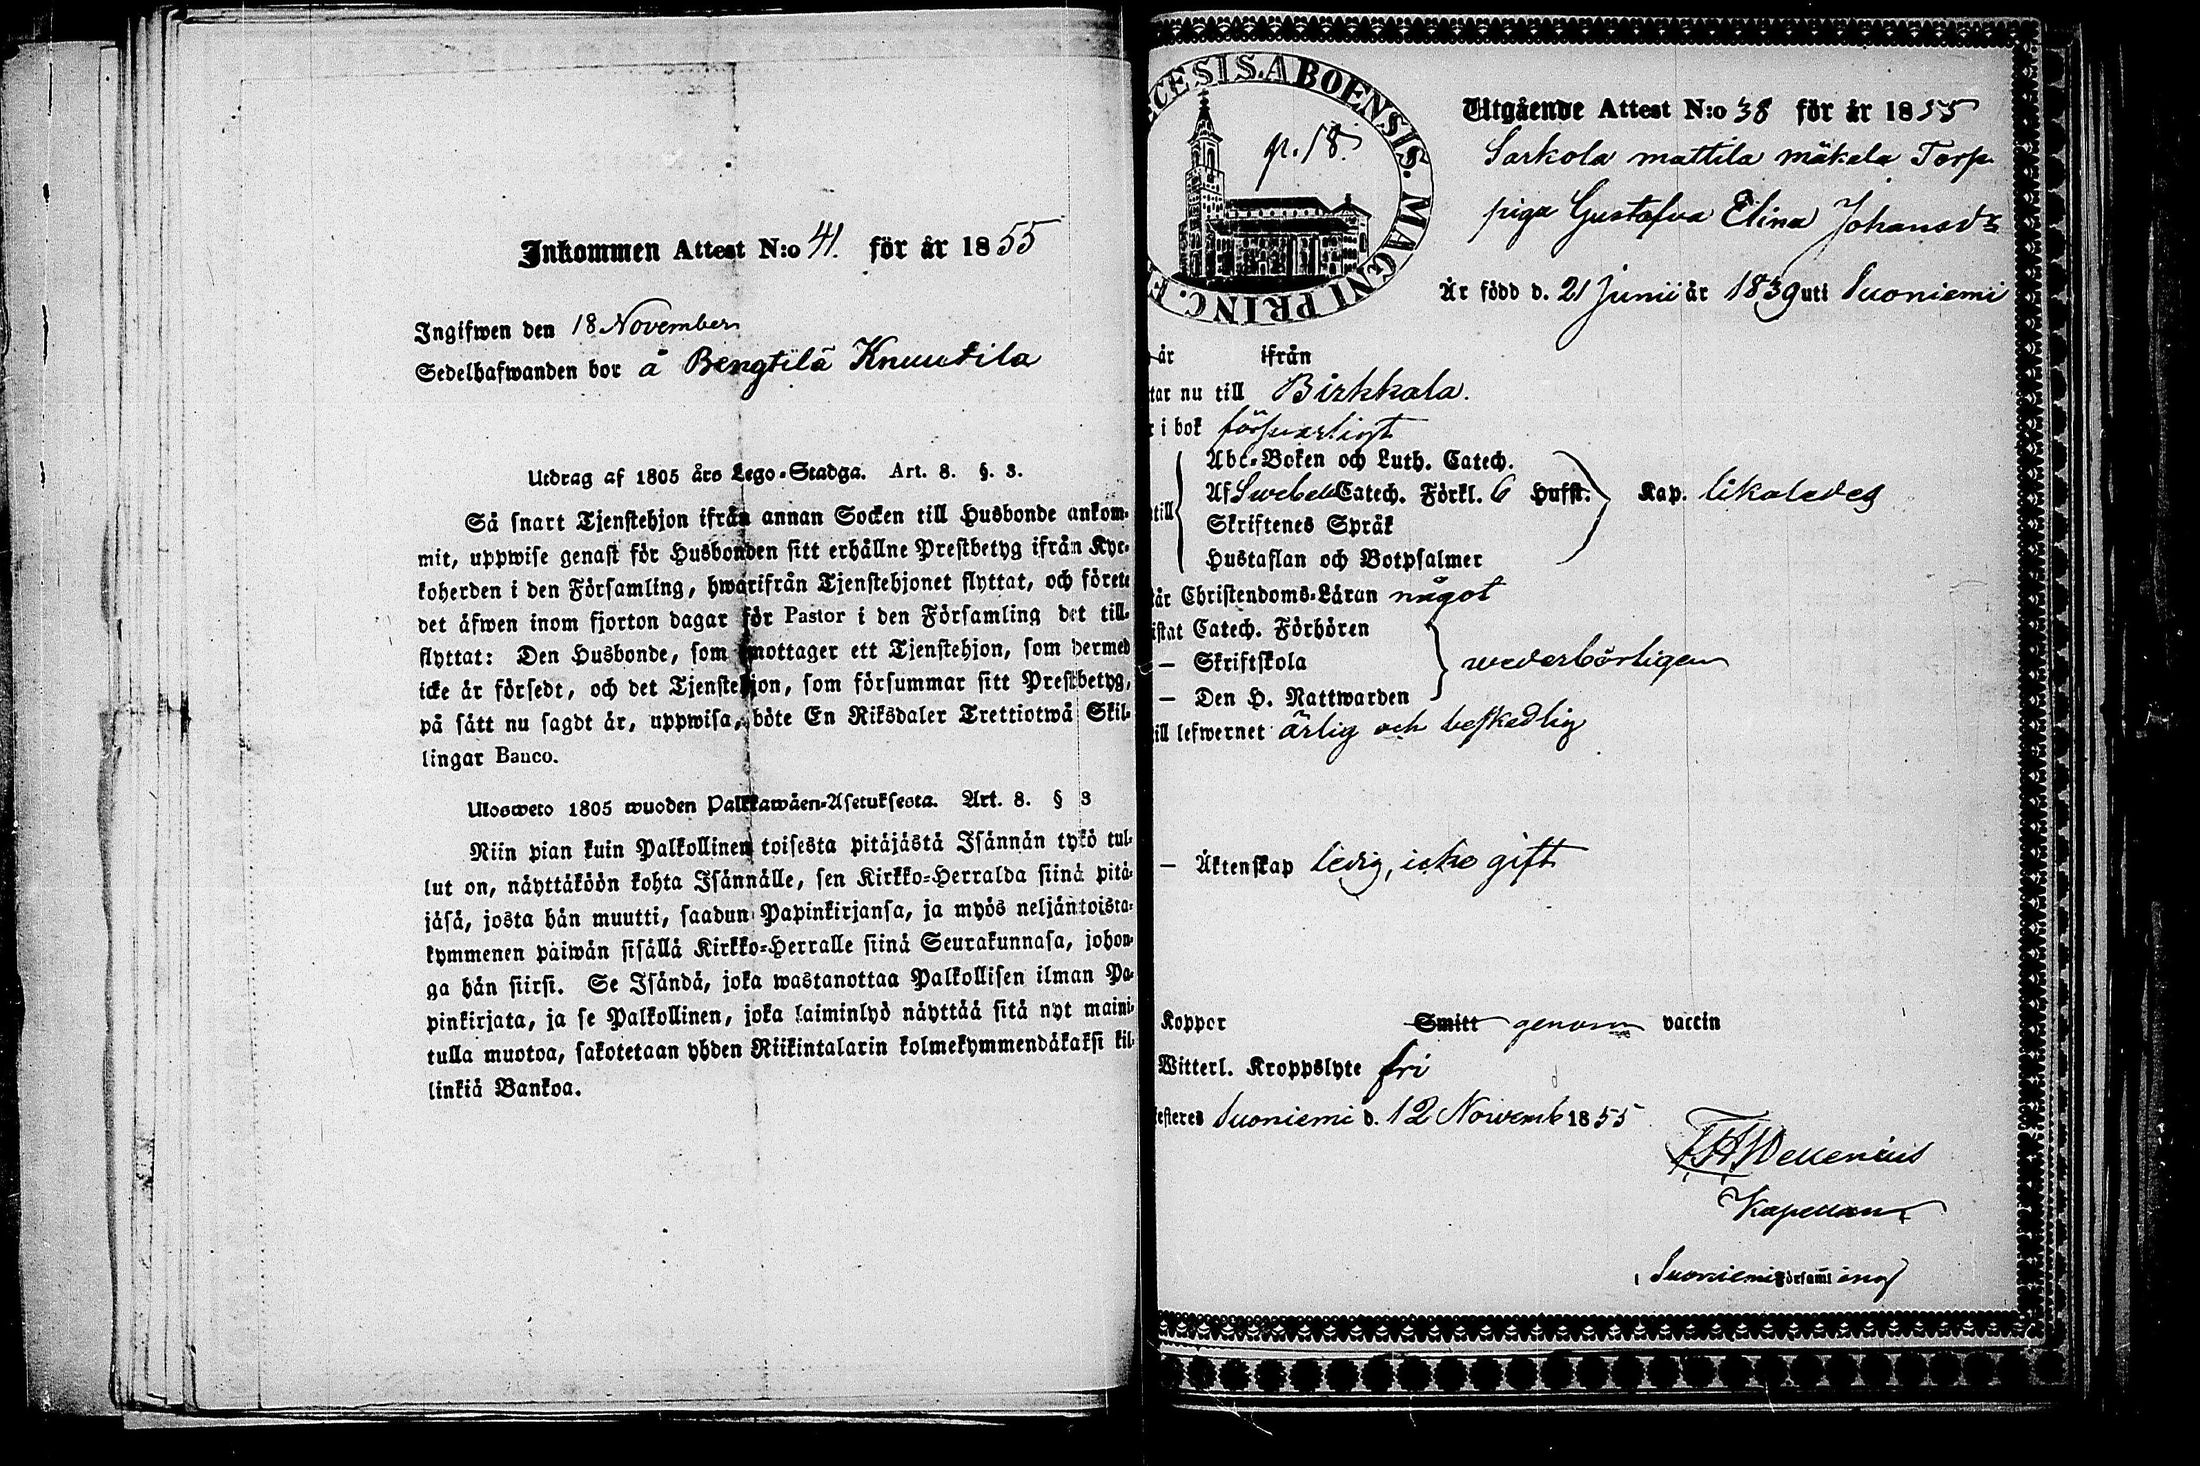 Inkommen Attest N:o 41. för år 1855
Ingifwen den 18 November
Sedelhafwanden bor å Bengtilä Knuutila
Utdrag af 1805 års Lego-Stadga. Art. 8. §. 3.
Så snart Tjenstehjon ifrån annan Socken till Husbonde ankom-
mit, uppwise genast för Husbonden sitt erhållne Prestbetyg ifrån Kyr-
koherden i den Församling, hwarifrån Tjenstehjonet flyttat, och förete
det äfwen inom fjorton dagar för Pastor i den Församling det till-
flyttat: Den Husbonde, som emottager ett Tjenstehjon, som dermed
icke är försedt, och det Tjenstehjon, som försummar sitt Prestbetyg,
på sätt nu sagdt är, uppwisa, böte En Riksdaler Trettiotwå Skil-
lingar Banco.
Ulosweto 1805 wuoden Palkkawäen-Asetuksesta. Art. 8. § 3
Niin pian kuin Palkollinen toisesta pitäjästä Isännän tykö tul-
lut on, näyttäköön kohta Isännälle, sen Kirkko-Herralda siinä pitä-
jäsä, josta hän muutti, saadun Papinkirjansa, ja myös neljäntoista-
kymmenen päiwän sisällä Kirkko-Herralle siinä Seurakunnasa, johon-
ga hän siirsi. Se Isändä, joka wastanottaa Palkollisen ilman Pa-
pinkirjata, ja se Palkollinen, joka laiminlyö näyttää sitä nyt maini-
tulla muotoa, sakotetaan yhden Riikintalarin kolmekymmendäkaksi kil-
linkiä Bankoa.
CESIS. ABOENSIS. MAGNI PRINC. F
p. 18.
Utgående Attest N:o 38 för år 1855
Sarkola mattila mäkela Torp.
piga Gustafva Elina Johansdr
Är född d. 21 Junii år 1839 uti Suoniemi
är ifrån
tar nu till Birkkala.
r i bok försvarligt
Abc-Boken och Luth. Catech.
till Af Swebelii Catech. Förkl. 6 Hufst. Kap. likaledes
Skriftenes Språk
Hustaflan och Botpsalmer
tår Christendoms-Läran något
istat Catech. Förhören
— Skriftskola wederbörligen
— Den H. Nattwarden
ill lefwernet ärlig och beskedlig
— Äktenskap ledig, icke gift
Koppor Smitt genom vaccin
Witterl. Kroppslyte fri
testeres Suoniemi d. 12 Novemb 1855
Wellenius
Kapellan
i Suoniemi Församling